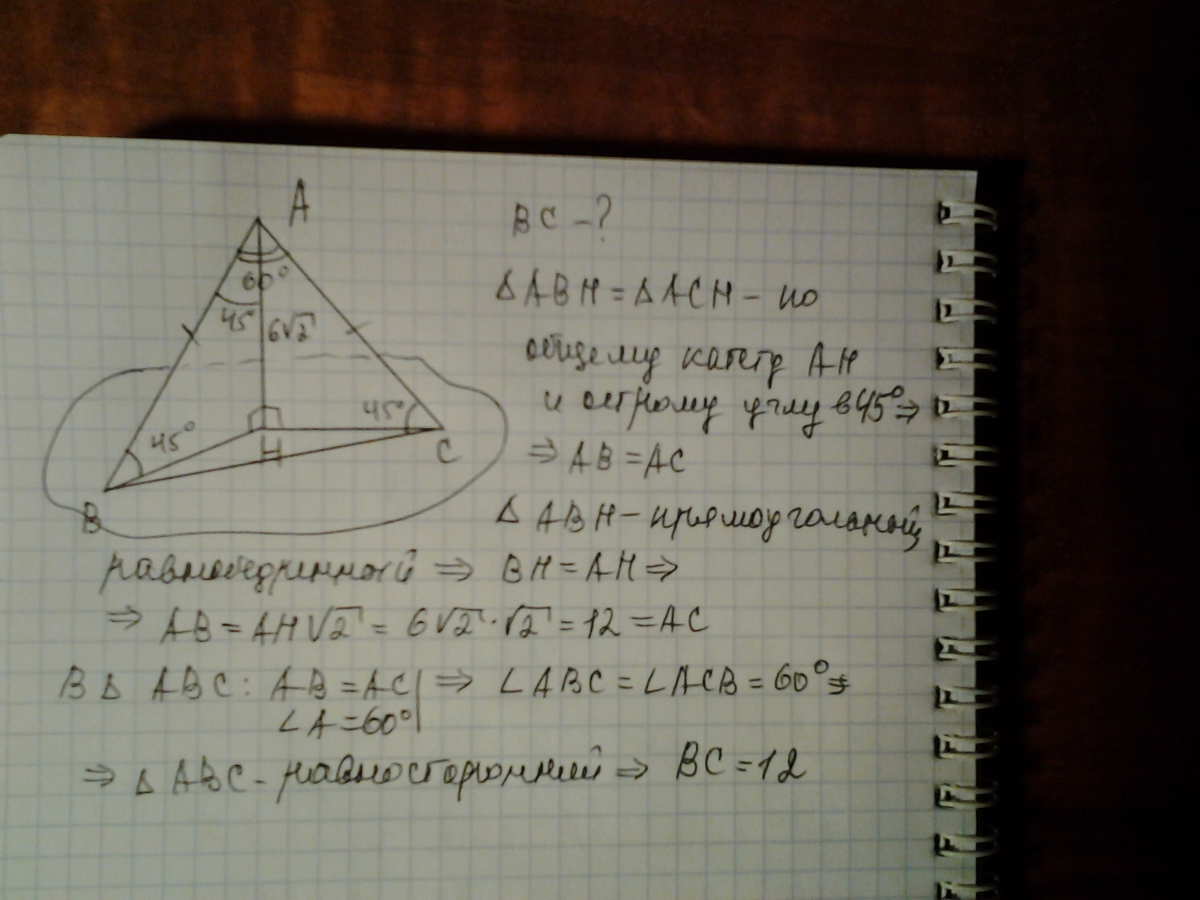 A
60°
45°
6√2
45°
45°
H
C
B
BC - ?
△ABH = △ACH - по
общему катету AH
и острому углу в 45° ⇒
⇒ AB = AC
△ ABH - прямоугольный
равнобедренный ⇒ BH = AH ⇒
⇒ AB = AH√2 = 6√2 · √2 = 12 = AC
В △ ABC: AB = AC | ⇒ ∠ABC = ∠ACB = 60° ⇒
∠A = 60°
⇒ △ ABC - равносторонний ⇒ BC = 12